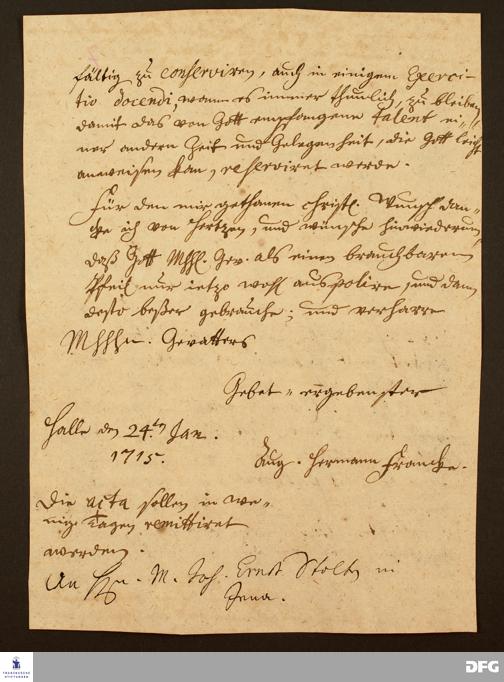 fältig zu conserviren, auch in einigem Exerci-
tio docendi, wenn es immer thunlich, zu bleiben,
damit das von Gott empfangene talent ei-
ner andern Zeit und Gelegenheit, die Gott leicht
anweisen kan, reserviret werde.
Für den mir gethanen christl. Wunsch dan-
cke ich von Hertzen, und wünsche hinwiederum,
daß Gott Mhh. Gev. als einen brauchbaren
Pfeil nur ietzo wohl auspolire, und dann
desto beßer gebrauche; und verharre
Mhhhn. Gevatters
Gebet-ergebenster
Halle den 24.ten Jan.
1715.
Aug. Hermann Francke.
Die acta sollen in we-
nig Tagen remittiret
werden.
An Hn. M. Joh. Ernst Stolte in
Jena.
FRANCKESCHE
STIFTUNGEN
DFG